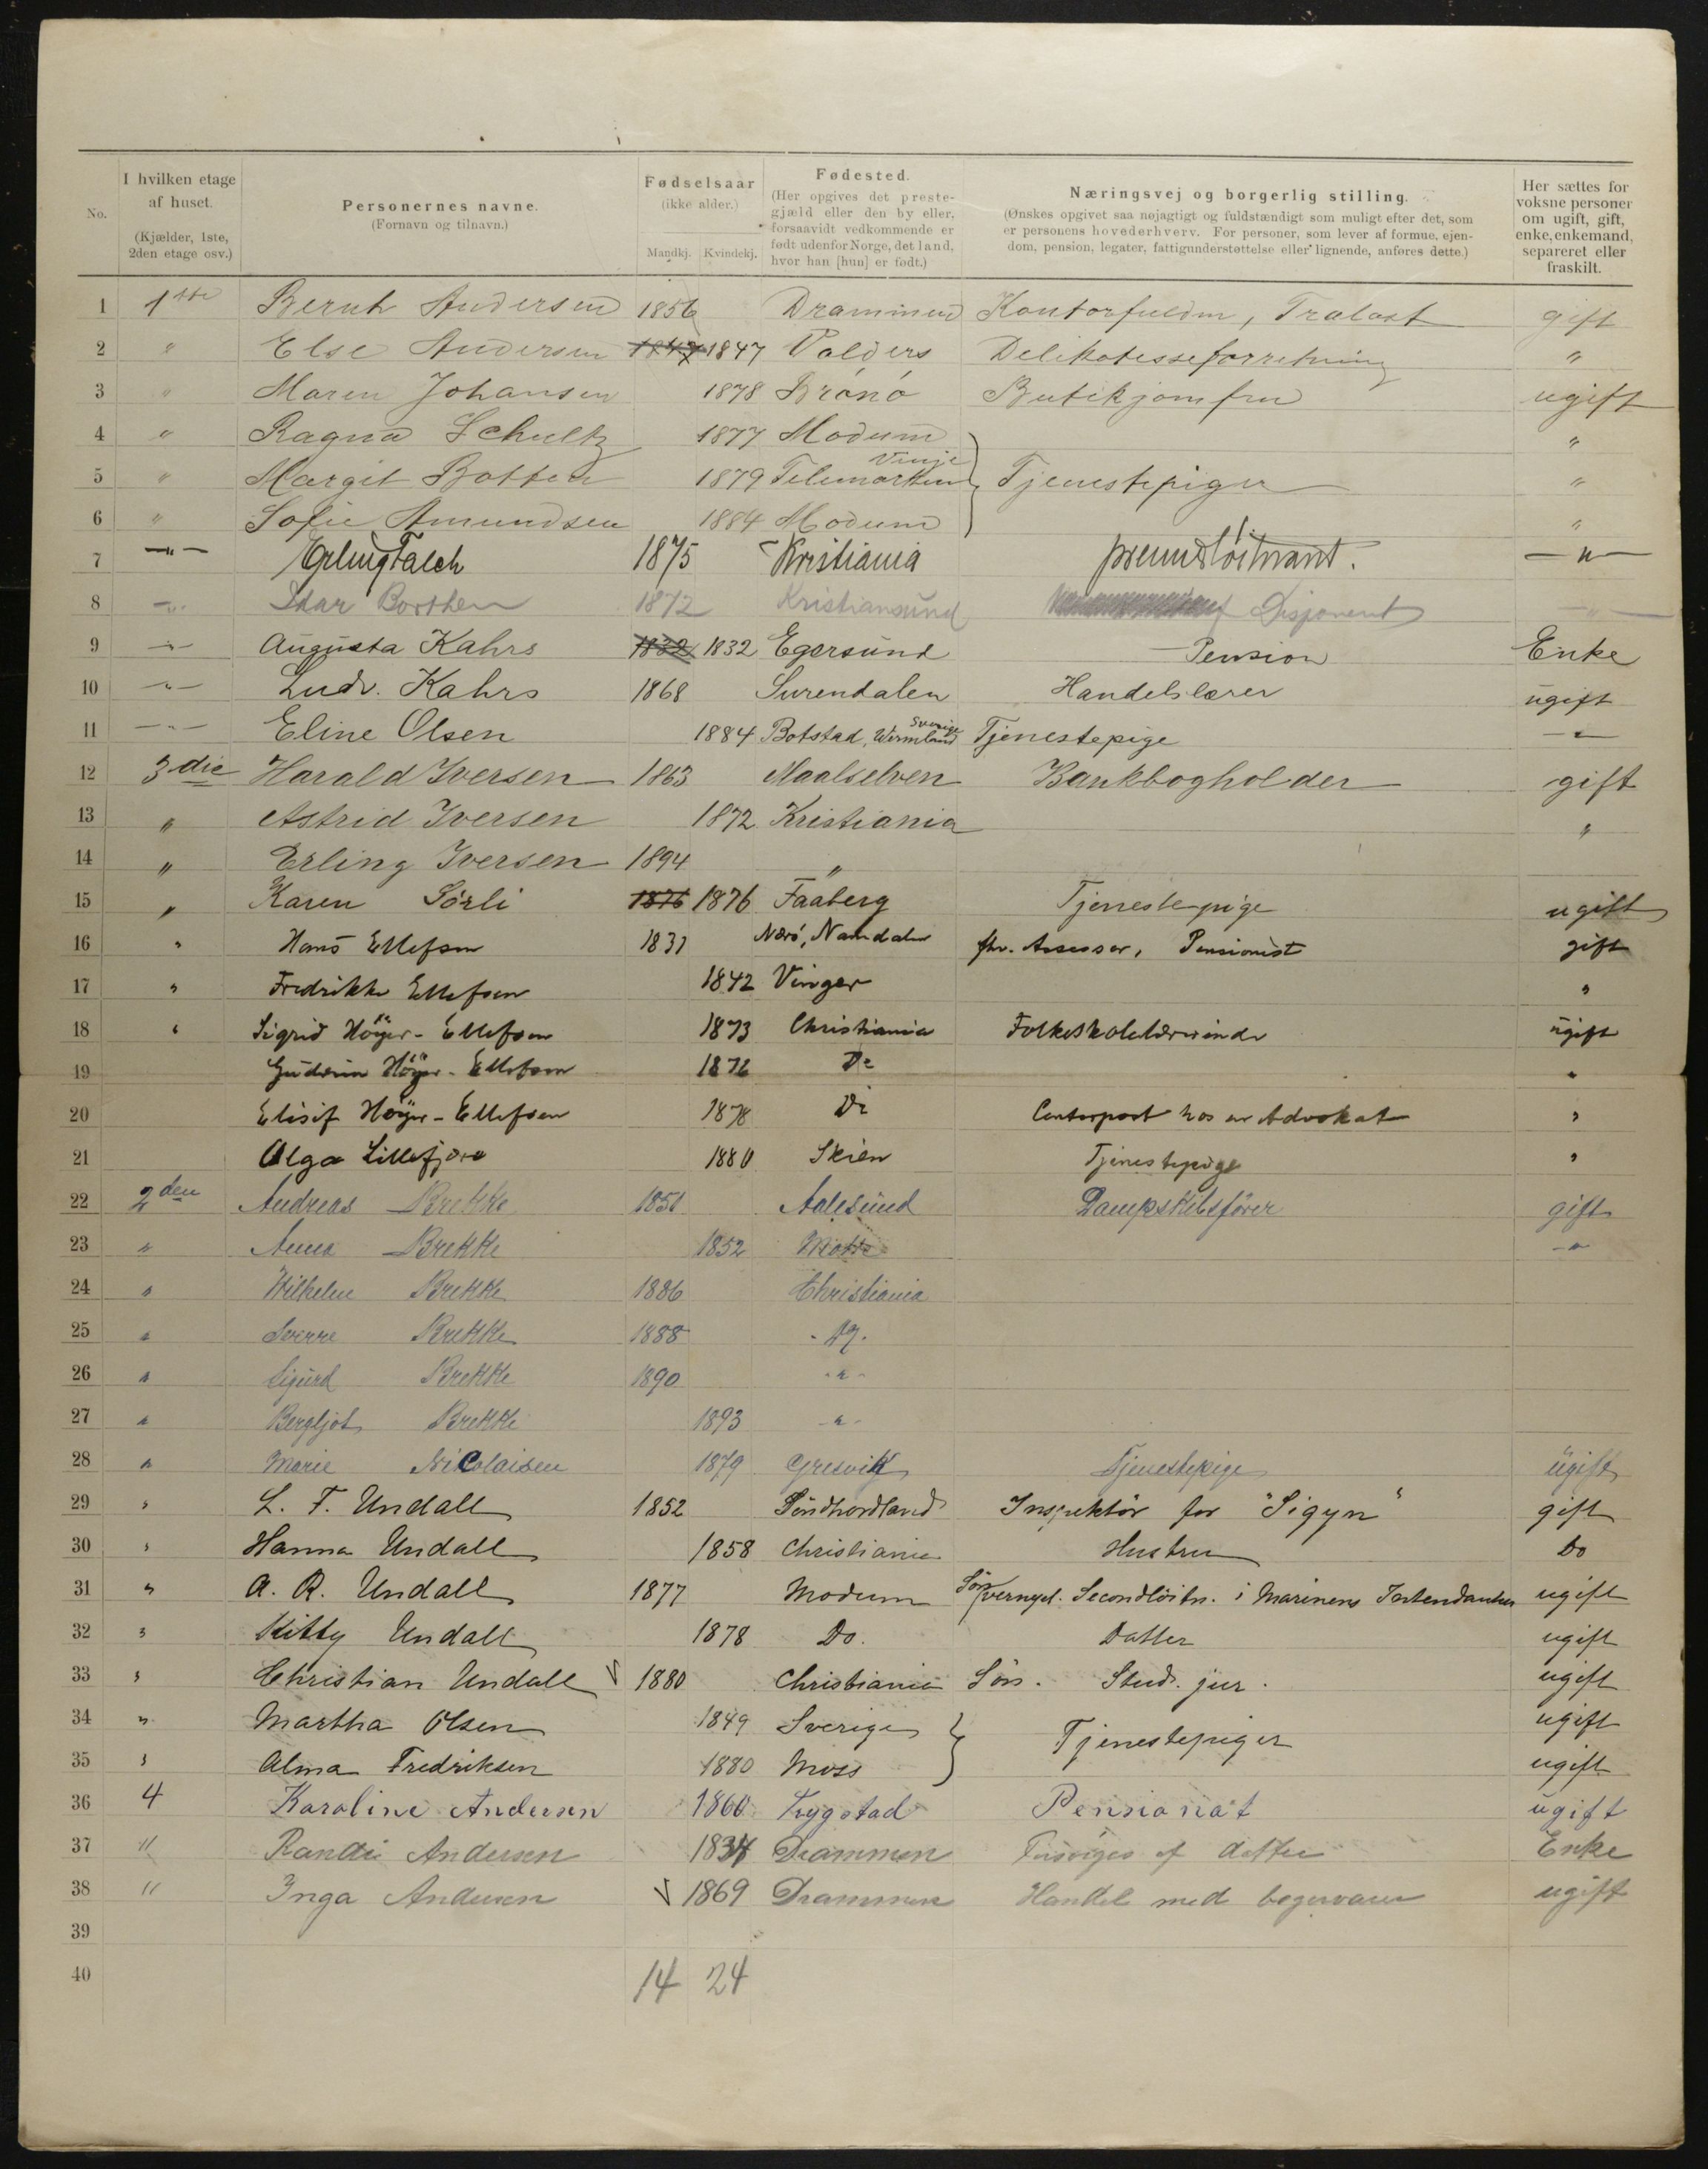 No.
I hvilken etage af huset.
(Kjælder, 1ste, 2den etage osv.)
Personernes navne.
(Fornavn og tilnavn.)
Fødselsaar
(ikke alder.)
Mandkj. Kvindekj.
Fødested.
(Her opgives det prestegjæld eller den by eller, forsaavidt vedkommende er født udenfor Norge, det land, hvor han [hun] er født.)
Næringsvej og borgerlig stilling.
(Ønskes opgivet saa nøjagtigt og fuldstændigt som muligt efter det, som er personens hovederhverv. For personer, som lever af formue, ejendom, pension, legater, fattigunderstøttelse eller lignende, anføres dette.)
Her sættes for voksne personer om ugift, gift, enke, enkemand, separeret eller fraskilt.
1 1ste Bernh Andersen 1856 Drammen Kontorfuldm, Tralast gift
2 " Else Andersen 1847 1847 Valders Delikatesseforretning "
3 " Maren Johansen 1878 Brönö Butikjomfru ugift
4 " Ragna Schultz 1877 Modum "
5 " Margit Botten 1879 Vinje Telemarken } Tjenestepiger "
6 " Sofie Amundsen 1884 Modum "
7 —"— Erling Falch 1875 Kristiania premierløitnant. —"—
8 —"— Borthen 1872 Kristiansund Disponent —"—
9 —"— Augusta Kahrs 1832 1832 Egersund Pension Enke
10 —"— Ludv. Kahrs 1868 Surendalen Handelslærer ugift
11 —"— Eline Olsen 1884 Botstad, Wermland Sverige Tjenestepige —"—
12 3die Harald Iversen 1863 Maalselven Bankbogholder gift
13 " Astrid Iversen 1872 Kristiania "
14 " Erling Iversen 1894 "
15 " Karen Sörli 1876 1876 Faaberg Tjenestepige ugift
16 " Hans Ellefsen 1831 Nærö, Namdalen fhv. Assessor, Pensionist gift
17 " Fredrikke Ellefsen 1842 Vinger "
18 " Sigrid Höyer-Ellefsen 1873 Christiania Folkeskolelærerinde ugift
19 Gudrun Höyer-Ellefsen 1876 Do "
20 Elisif Höyer-Ellefsen 1878 Do Contorpost hos en Advokat "
21 Olga Lillefjære 1880 Skien Tjenestepige "
22 2den Andreas Brekke 1851 Aalesund Dampskibsfører gift
23 " Anna Brekke 1852 —"—
24 " Wilhelm Brekke 1886 Christiania
25 " Sverre Brekke 1888 Do.
26 " Sigurd Brekke 1890 -"-
27 " Bergljot Brekke 1893 -"-
28 " Marie Nicolaisen 1879 Gresvik Tjenestepige ugift
29 " L. F. Undall 1852 Söndhordland Inspektör for "Sigyn" gift
30 " Hanna Undall 1858 Christiania Hustru Do
31 " A. R. Undall 1877 Modum Sön, vernepl. Secondlöitn. i Marinens Intendantur ugift
32 " Kitty Undall 1878 Do. Datter ugift
33 " Christian Undall 1880 Christiania Sön. Stud. jur. ugift
34 " Martha Olsen 1849 Sverige } Tjenestepiger ugift
35 " Alma Fredriksen 1880 Moss ugift
36 4 Karoline Andersen 1860 Trygstad Pensionat ugift
37 " Randi Andersen 1834 Drammen Forsörges af datter Enke
38 " Inga Andersen 1869 Drammen Handel med bagervarer ugift
39
40
14 24